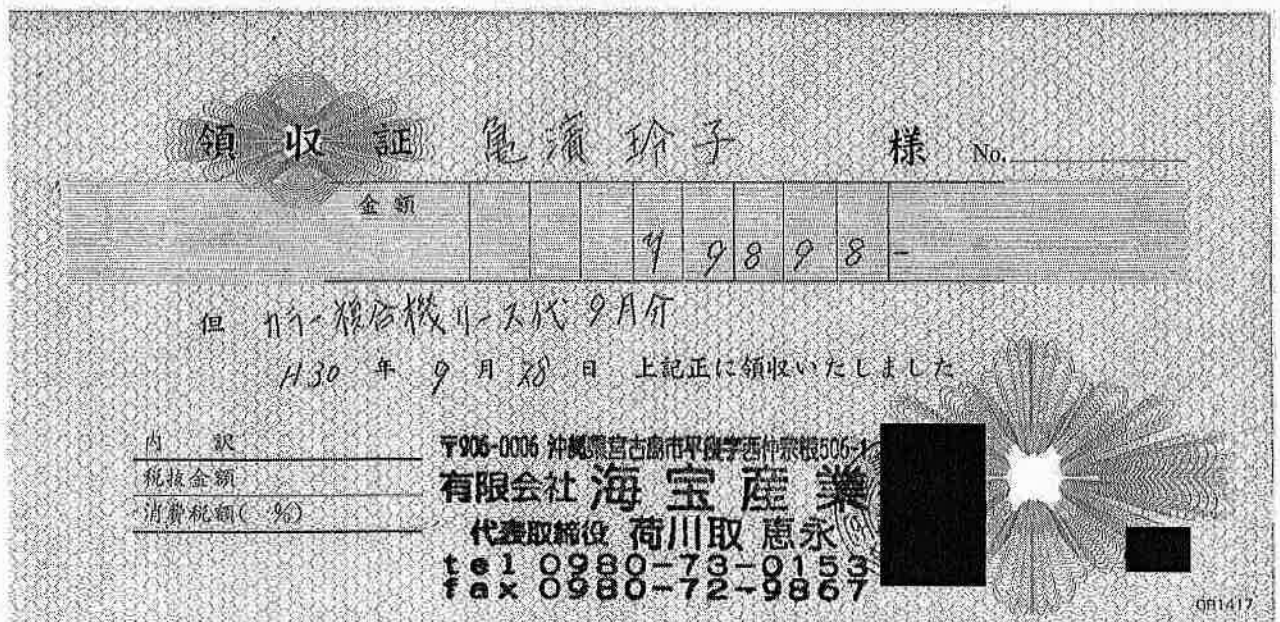 領収証 亀濱玲子 様 No.
金額 ¥9898-
但 カラー複合機リース代 9月分
H30年9月28日 上記正に領収いたしました
内訳
税抜金額
消費税額( %)
〒906-0006 沖縄県宮古島市平良字西仲宗根506-1
有限会社 海宝産業
代表取締役 荷川取 恵永
tel 0980-73-0153
fax 0980-72-9867
GR1417